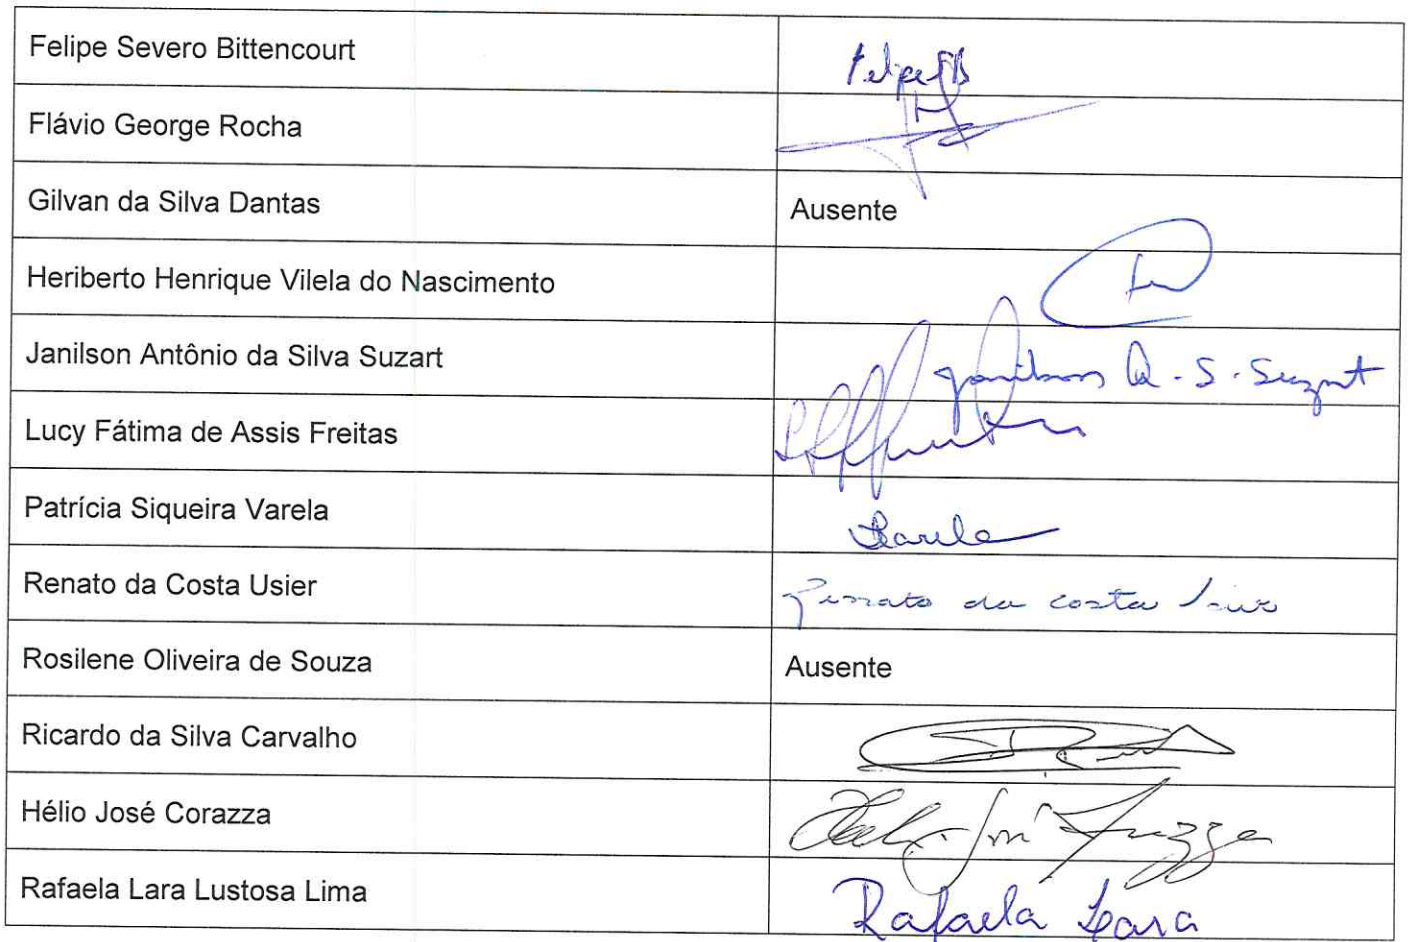 Felipe Severo Bittencourt FelipeSB
Flávio George Rocha
Gilvan da Silva Dantas Ausente
Heriberto Henrique Vilela do Nascimento
Janilson Antônio da Silva Suzart Janilson A. S. Suzart
Lucy Fátima de Assis Freitas
Patrícia Siqueira Varela Varela
Renato da Costa Usier Renato da Costa
Rosilene Oliveira de Souza Ausente
Ricardo da Silva Carvalho
Hélio José Corazza José
Rafaela Lara Lustosa Lima Rafaela Lara